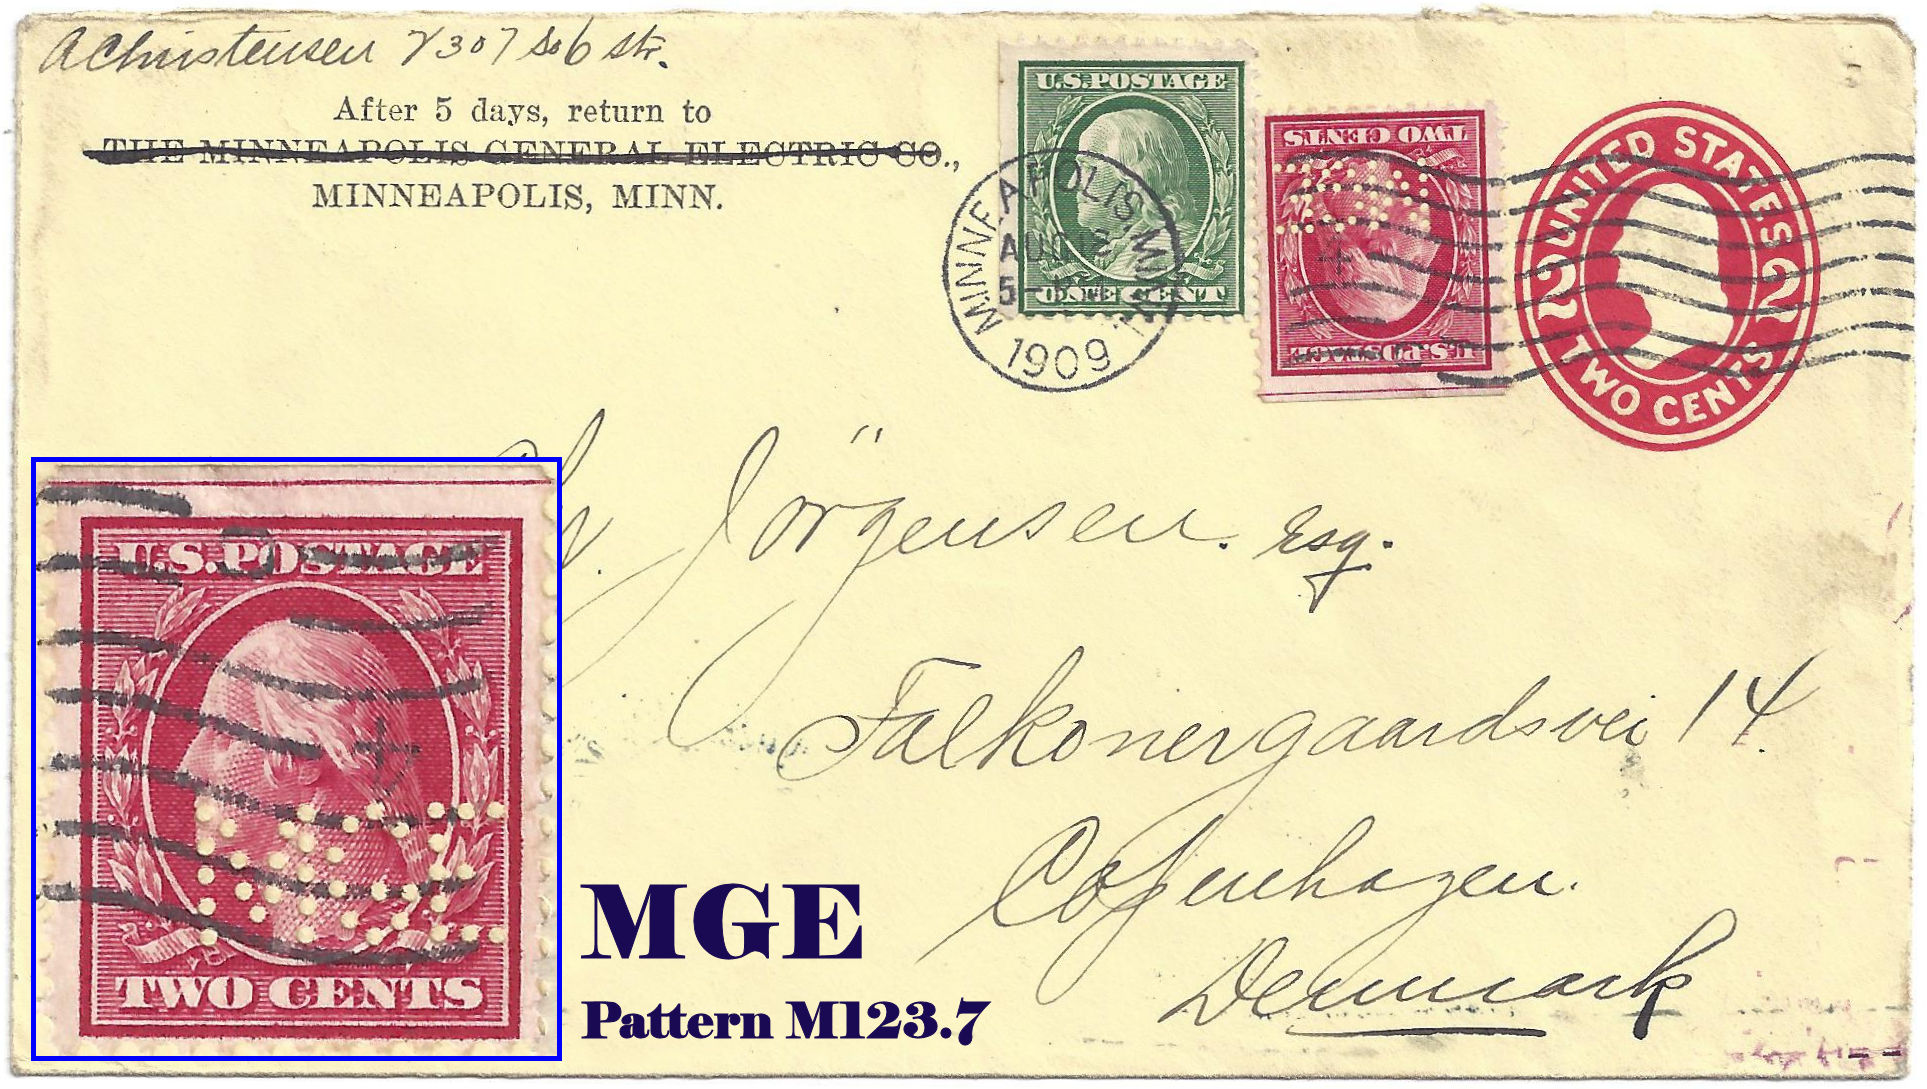 A Christensen 2307 So 6 Str.
After 5 days, return to
THE MINNEAPOLIS GENERAL ELECTRIC CO.,
MINNEAPOLIS, MINN.
U.S. POSTAGE
ONE CENT
MINNEAPOLIS, MINN.
AUG 12
1909
TWO CENTS
U.S. POSTAGE
UNITED STATES
2 2
TWO CENTS
Jörgensen. Esq.
Falkonergaardsvei 14.
Copenhagen.
Denmark
U.S. POSTAGE
MGE
TWO CENTS
MGE
Pattern M123.7